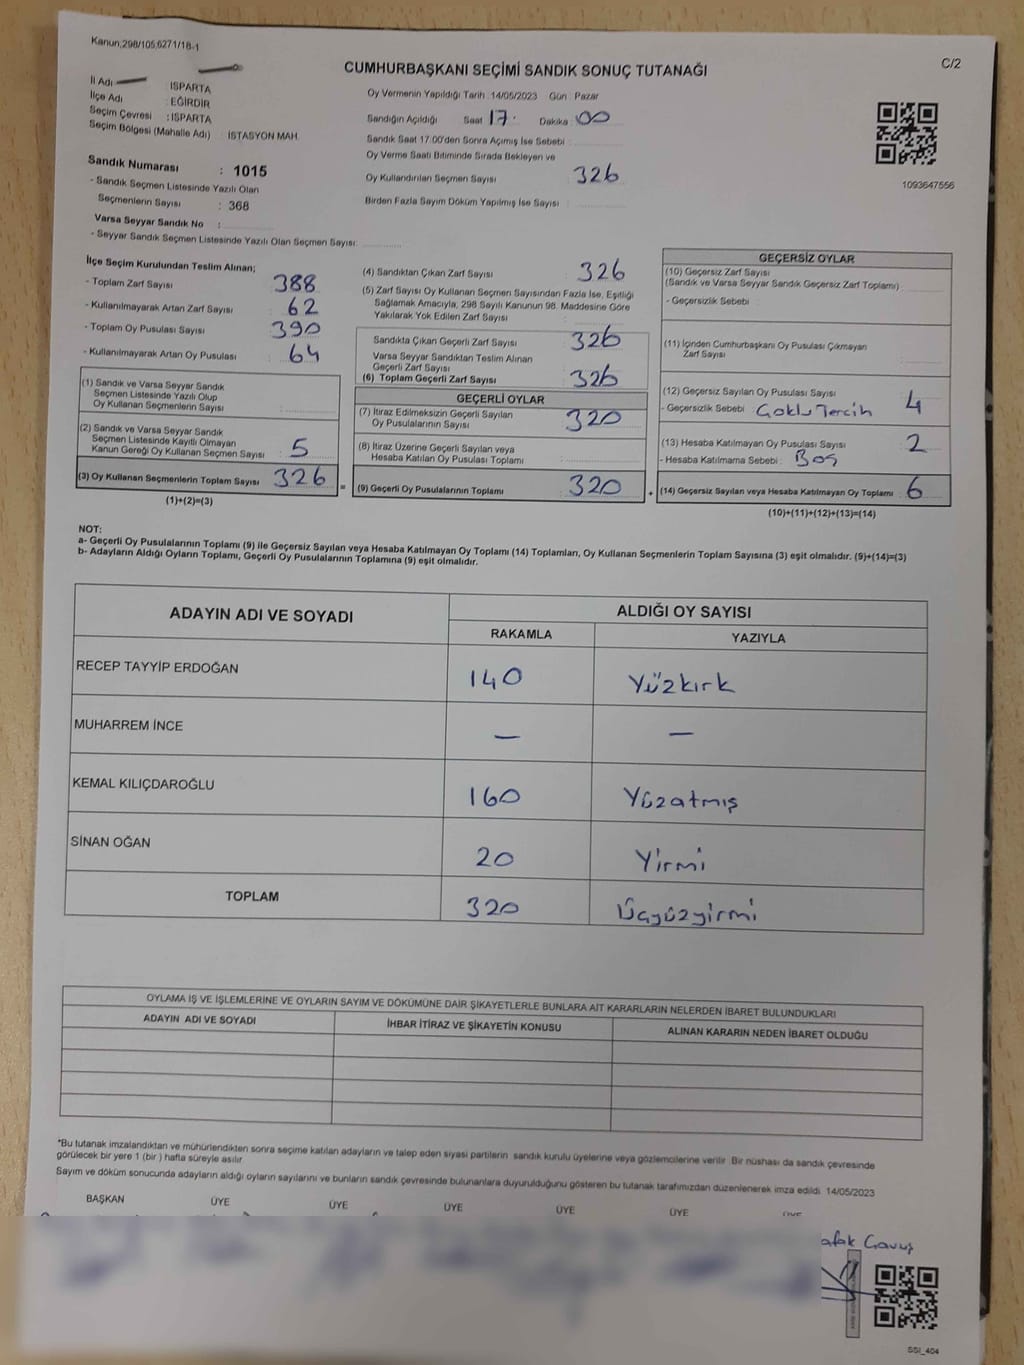 Kanun:298/105,6271/18-1
C/2
CUMHURBAŞKANI SEÇİMİ SANDIK SONUÇ TUTANAĞI
İl Adı : ISPARTA
İlçe Adı : EĞİRDİR
Seçim Çevresi : ISPARTA
Seçim Bölgesi (Mahalle Adı) : İSTASYON MAH.
Sandık Numarası : 1015
- Sandık Seçmen Listesinde Yazılı Olan
Seçmenlerin Sayısı : 368
Varsa Seyyar Sandık No :
- Seyyar Sandık Seçmen Listesinde Yazılı Olan Seçmen Sayısı:
Oy Vermenin Yapıldığı Tarih :14/05/2023 Gün : Pazar
Sandığın Açıldığı Saat : 17 Dakika : 00
Sandık Saat 17:00'den Sonra Açımış İse Sebebi :
Oy Verme Saati Bitiminde Sırada Bekleyen ve
Oy Kullandırılan Seçmen Sayısı 326
Birden Fazla Sayım Döküm Yapılmış İse Sayısı :
1093647556
İlçe Seçim Kurulundan Teslim Alınan;
- Toplam Zarf Sayısı 388
- Kullanılmayarak Artan Zarf Sayısı 62
- Toplam Oy Pusulası Sayısı 390
- Kullanılmayarak Artan Oy Pusulası 64
(1) Sandık ve Varsa Seyyar Sandık
Seçmen Listesinde Yazılı Olup
Oy Kullanan Seçmenlerin Sayısı :
(2) Sandık ve Varsa Seyyar Sandık
Seçmen Listesinde Kayıtlı Olmayan
Kanun Gereği Oy Kullanan Seçmen Sayısı : 5
(3) Oy Kullanan Seçmenlerin Toplam Sayısı 326
(1)+(2)=(3)
(4) Sandıktan Çıkan Zarf Sayısı 326
(5) Zarf Sayısı Oy Kullanan Seçmen Sayısından Fazla İse, Eşitliği
Sağlamak Amacıyla, 298 Sayılı Kanunun 98. Maddesine Göre
Yakılarak Yok Edilen Zarf Sayısı :
Sandıkta Çıkan Geçerli Zarf Sayısı 326
Varsa Seyyar Sandıktan Teslim Alınan
Geçerli Zarf Sayısı :
(6) Toplam Geçerli Zarf Sayısı 326
GEÇERLİ OYLAR
(7) İtiraz Edilmeksizin Geçerli Sayılan
Oy Pusulalarının Sayısı 320
(8) İtiraz Üzerine Geçerli Sayılan veya
Hesaba Katılan Oy Pusulası Toplamı :
= (9) Geçerli Oy Pusulalarının Toplamı 320 +
GEÇERSİZ OYLAR
(10) Geçersiz Zarf Sayısı
(Sandık ve Varsa Seyyar Sandık Geçersiz Zarf Toplamı) :
- Geçersizlik Sebebi :
(11) İçinden Cumhurbaşkanı Oy Pusulası Çıkmayan
Zarf Sayısı :
(12) Geçersiz Sayılan Oy Pusulası Sayısı 4
- Geçersizlik Sebebi : Çoklu Tercih
(13) Hesaba Katılmayan Oy Pusulası Sayısı 2
- Hesaba Katılmama Sebebi : Boş
(14) Geçersiz Sayılan veya Hesaba Katılmayan Oy Toplamı : 6
(10)+(11)+(12)+(13)=(14)
NOT:
a- Geçerli Oy Pusulalarının Toplamı (9) ile Geçersiz Sayılan veya Hesaba Katılmayan Oy Toplamı (14) Toplamları, Oy Kullanan Seçmenlerin Toplam Sayısına (3) eşit olmalıdır. (9)+(14)=(3)
b- Adayların Aldığı Oyların Toplamı, Geçerli Oy Pusulalarının Toplamına (9) eşit olmalıdır.
ADAYIN ADI VE SOYADI ALDIĞI OY SAYISI
RAKAMLA YAZIYLA
RECEP TAYYİP ERDOĞAN 140 Yüzkırk
MUHARREM İNCE — —
KEMAL KILIÇDAROĞLU 160 Yüzatmış
SİNAN OĞAN 20 Yirmi
TOPLAM 320 Üçyüzyirmi
OYLAMA İŞ VE İŞLEMLERİNE VE OYLARIN SAYIM VE DÖKÜMÜNE DAİR ŞİKAYETLERLE BUNLARA AİT KARARLARIN NELERDEN İBARET BULUNDUKLARI
ADAYIN ADI VE SOYADI İHBAR İTİRAZ VE ŞİKAYETİN KONUSU ALINAN KARARIN NEDEN İBARET OLDUĞU
*Bu tutanak imzalandıktan ve mühürlendikten sonra seçime katılan adayların ve talep eden siyasi partilerin sandık kurulu üyelerine veya gözlemcilerine verilir. Bir nüshası da sandık çevresinde
görülecek bir yere 1 (bir ) hafta süreyle asılır.
Sayım ve döküm sonucunda adayların aldığı oyların sayılarını ve bunların sandık çevresinde bulunanlara duyurulduğunu gösteren bu tutanak tarafımızdan düzenlenerek imza edildi. 14/05/2023
BAŞKAN ÜYE ÜYE ÜYE ÜYE ÜYE ÜYE
afak Çavuş
SSI_404